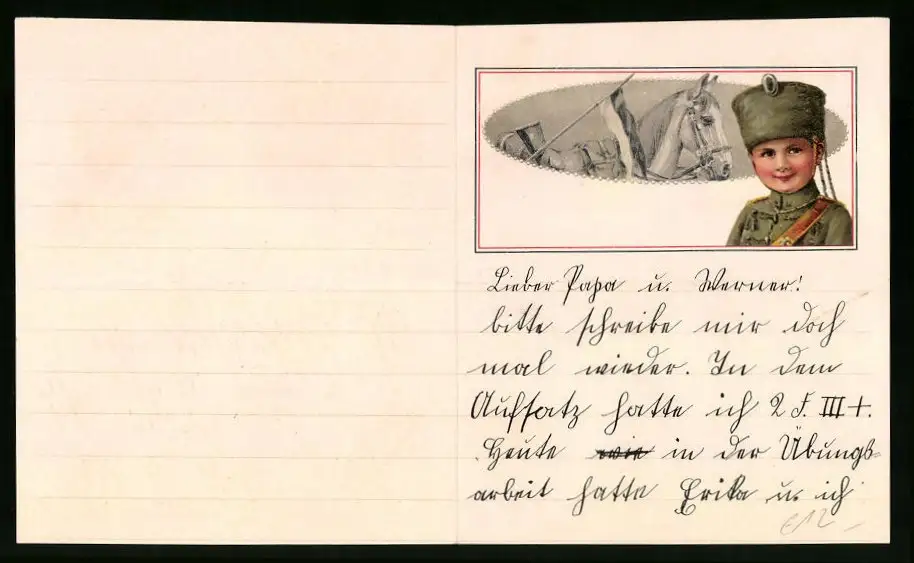 Lieber Papa u. Werner!
bitte schreibe mir doch
mal wieder. In dem
Aufsatz hatte ich 2 F. III+.
Heute wir in der Übungs=
arbeit hatte Erika u. ich